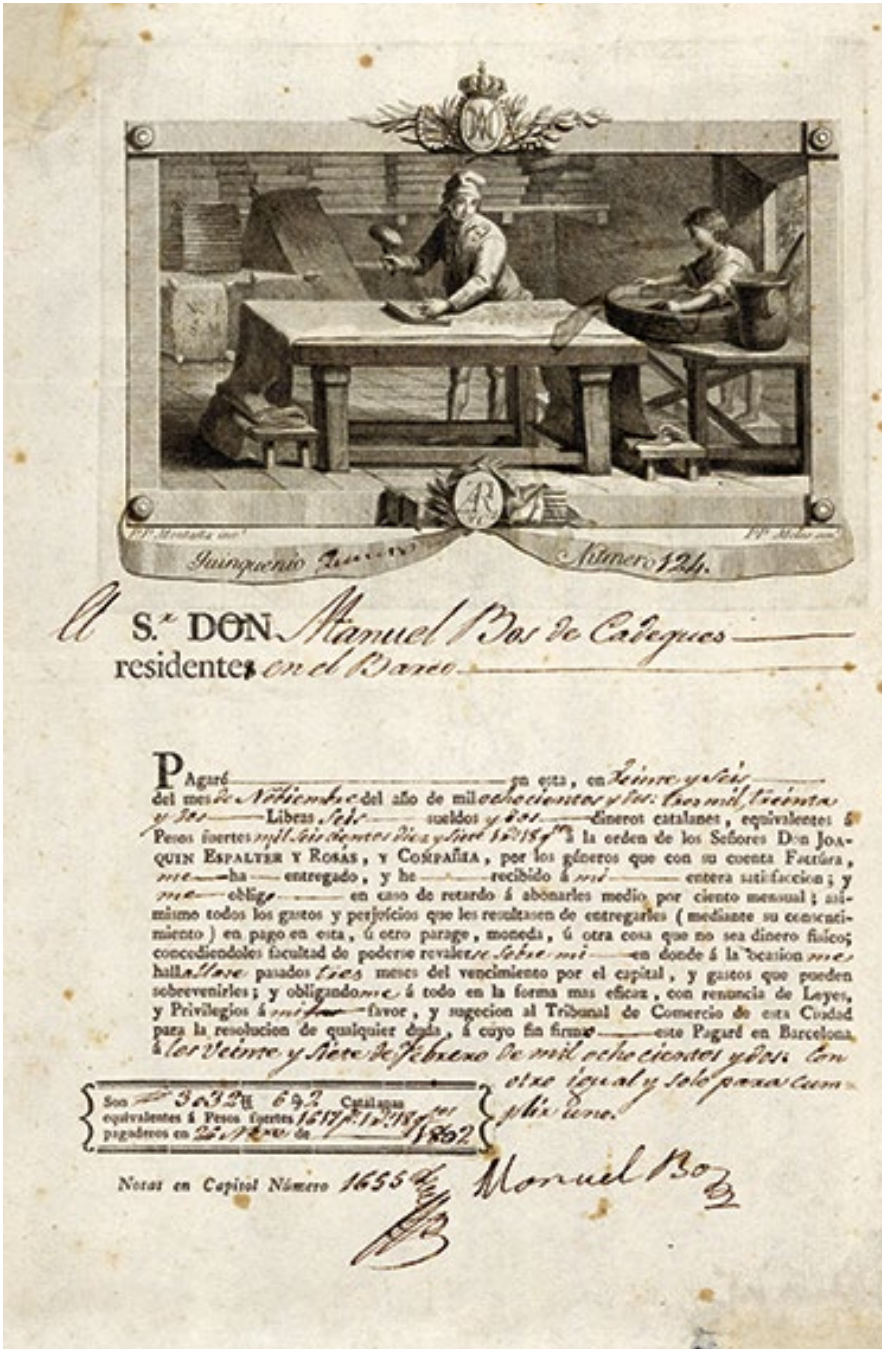 AR
P.P. Montaña inv.t
P.P. Moles
Quinquenio
Número 124.
A S.r DON Manuel Bos de Cadeques
residentes en el Barco
PAgaré en esta, en Veinte y Seis
del mes de Nobiembre del año de mil ochocientos y dos: tres mil, treinta
y dos Libras Seis sueldos y dos dineros catalanes, equivalentes á
Pesos fuertes mil Seis cientos diez y Siete á la orden de los Señores Don JOA-
QUIN ESPALTER Y ROSÁS, Y COMPAÑIA, por los géneros que con su cuenta Factúra,
me ha entregado, y he recibido á mi entera satisfaccion; y
me obligo en caso de retardo á abonarles medio por ciento mensual; asi-
mismo todos los gastos y perjuicios que les resultasen de entregarles (mediante su consenti-
miento) en pago en esta, ú otro parage, moneda, ú otra cosa que no sea dinero físico;
concediendoles facultad de poderse revalerse sobre mi en donde á la ocasion me
hallase pasados tres meses del vencimiento por el capital, y gastos que pueden
sobrevenirles; y obligandome á todo en la forma mas eficaz, con renuncia de Leyes,
y Privilegios á mi favor, y sugecion al Tribunal de Comercio de esta Ciudad
para la resolucion de qualquier duda, á cuyo fin firmo este Pagaré en Barcelona
á los Veinte y Siete de Febrero de mil ochocientos y dos. Con
otro igual y solo para cum-
plir uno.
Son 3032 ℔ 6 ş 2 Catalanas
equivalentes á Pesos fuertes 1617
pagaderos en 26 de 1802
Notas en Capitol Número 1655
Manuel Bos